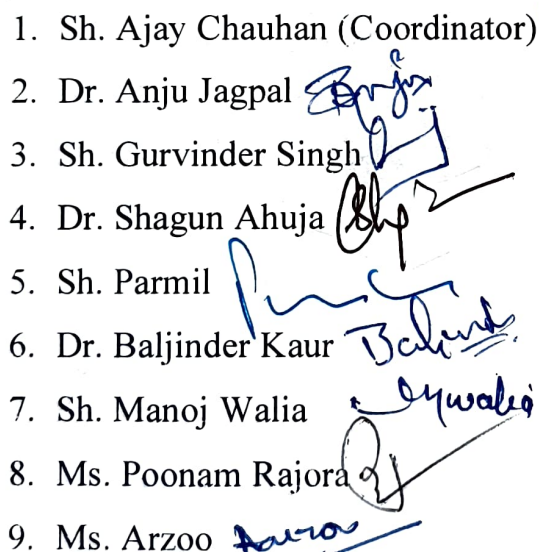 1. Sh. Ajay Chauhan (Coordinator)
2. Dr. Anju Jagpal
3. Sh. Gurvinder Singh
4. Dr. Shagun Ahuja
5. Sh. Parmil
6. Dr. Baljinder Kaur
7. Sh. Manoj Walia
8. Ms. Poonam Rajora
9. Ms. Arzoo